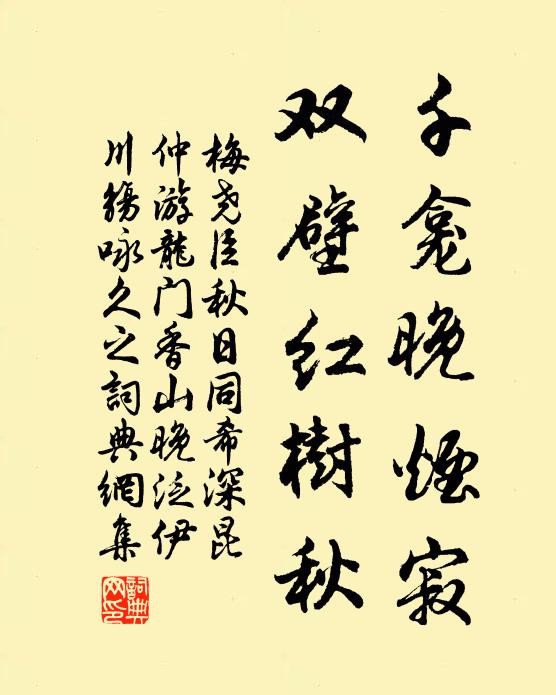 千龛晚煙寂
双壁红樹秋
梅尧臣秋日同希深昆
仲游龍门香山晚泛伊
川觴咏久之詞典網集
詞典网印